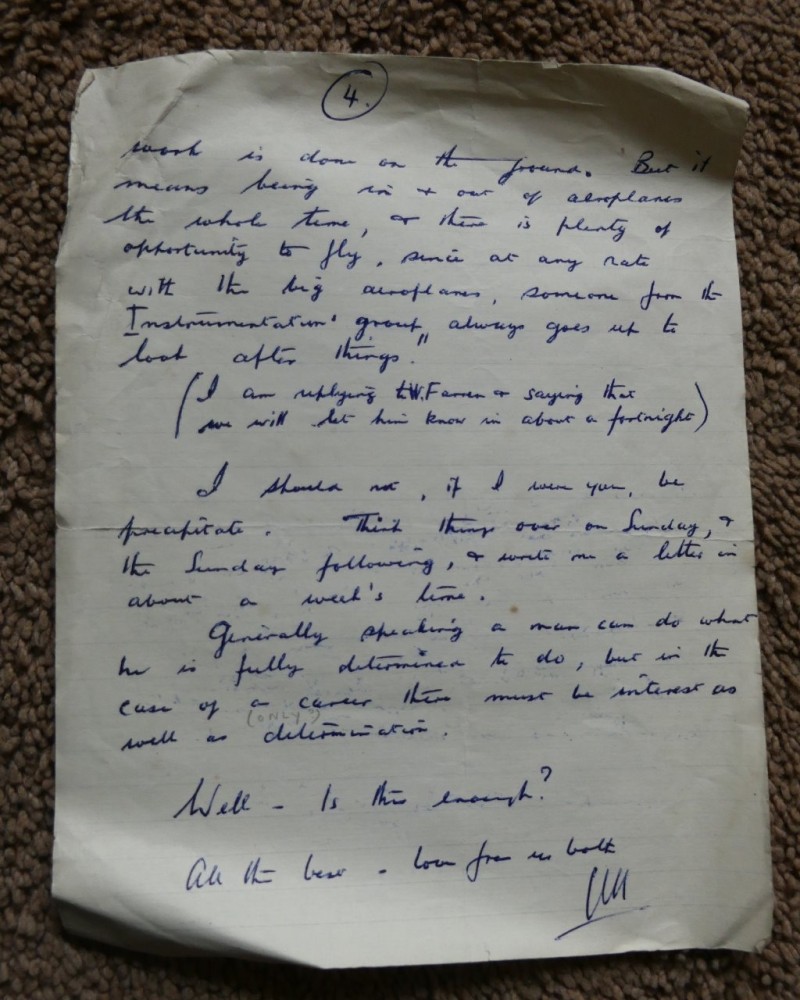 4.
work is done on the ground. But it
means being in + out of aeroplanes
the whole time, + there is plenty of
opportunity to fly, since at any rate
with the big aeroplanes, someone from the
Instrumentation' group, always goes up to
look after things."
(I am replying to W. Farren + saying that
we will let him know in about a fortnight)
I should not, if I were you, be
precipitate. Think things over on Sunday, +
the Sunday following, + write me a letter in
about a week's time.
Generally speaking a man can do what
he is fully determined to do, but in the
case of a career there must be interest as
(ONLY?)
well as determination.
Well - Is this enough?
All the best - love from us both